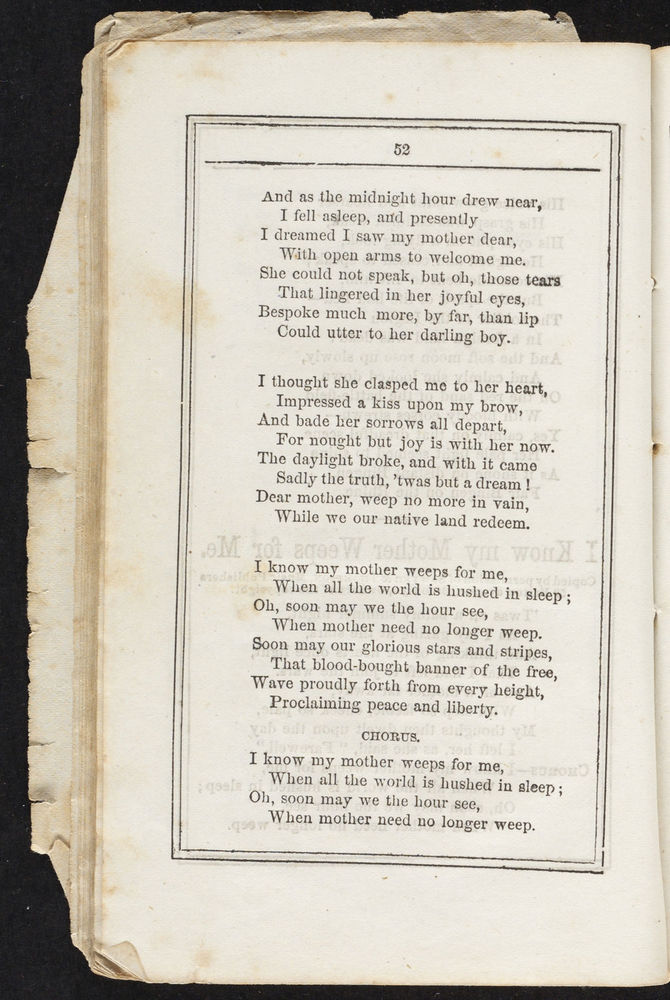 52
And as the midnight hour drew near,
I fell asleep, and presently
I dreamed I saw my mother dear,
With open arms to welcome me.
She could not speak, but oh, those tears
That lingered in her joyful eyes,
Bespoke much more, by far, than lip
Could utter to her darling boy.
I thought she clasped me to her heart,
Impressed a kiss upon my brow,
And bade her sorrows all depart,
For nought but joy is with her now.
The daylight broke, and with it came
Sadly the truth, 'twas but a dream !
Dear mother, weep no more in vain,
While we our native land redeem.
I know my mother weeps for me,
When all the world is hushed in sleep ;
Oh, soon may we the hour see,
When mother need no longer weep.
Soon may our glorious stars and stripes,
That blood-bought banner of the free,
Wave proudly forth from every height,
Proclaiming peace and liberty.
CHORUS.
I know my mother weeps for me,
When all the world is hushed in sleep ;
Oh, soon may we the hour see,
When mother need no longer weep.